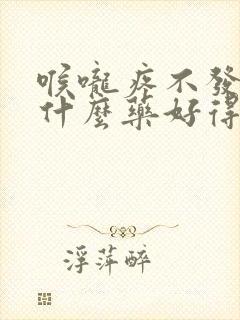 喉嚨疼不發
什麼藥好得
浮萍醉